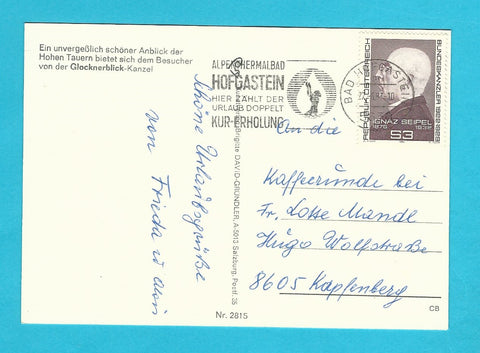 Ein unvergeßlich schöner Anblick der
Hohen Tauern bietet sich dem Besucher
von der Glocknerblick-Kanzel
Schöne Urlaubsgrüße
von Frieda u
ALPENTHERMALBAD
HOFGASTEIN
HIER ZÄHLT DER
URLAUB DOPPELT
KUR-ERHOLUNG
BAD HOFGASTEIN
REPUBLIK ÖSTERREICH
BUNDESKANZLER
IGNAZ SEIPEL
1876 1932
S3
Brigitte DAVID-GRÜNDLER, A-5013 Salzburg, Postf. 35
An die
Kaffeerunde bei
Fr. Lotte Mandl
Hugo Wolfstraße
8605 Kapfenberg
Nr. 2815
CB